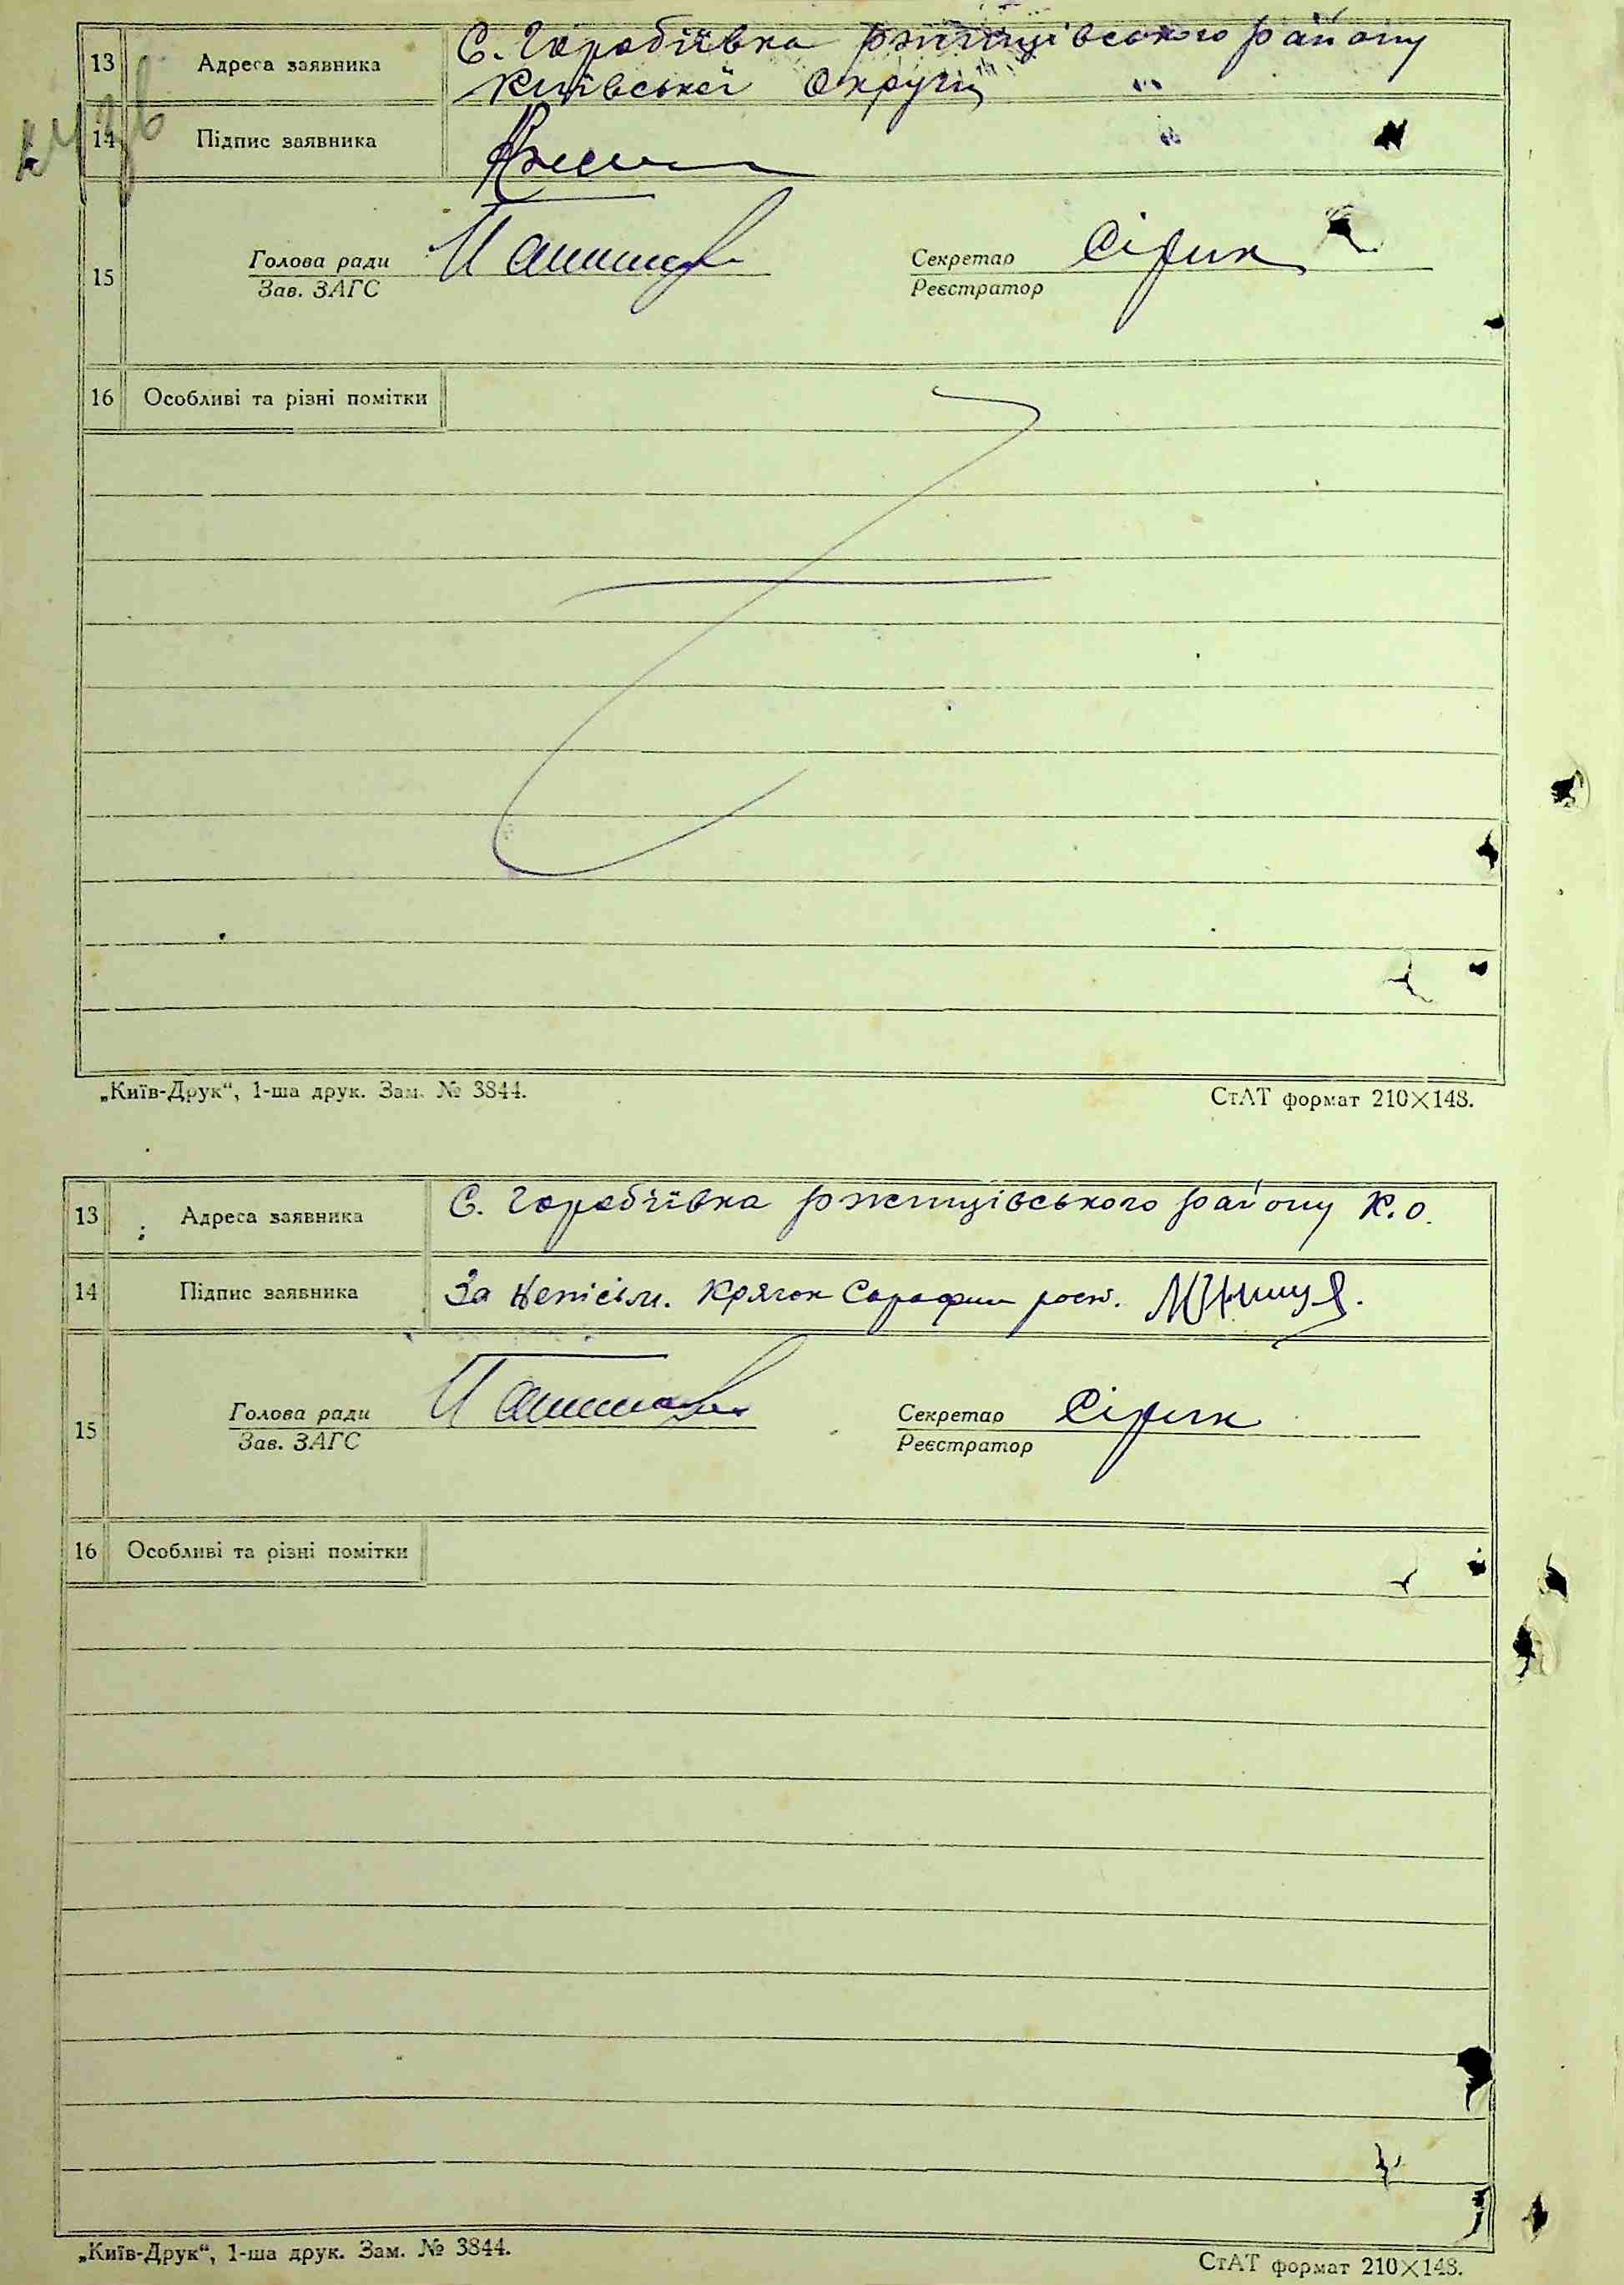 13 Адреса заявника С. Горобіївка ржищівського району
Київської Округи
14 Підпис заявника
15 Голова ради Секретар Сірик
Зав. ЗАГС Реєстратор
16 Особливі та різні помітки
„Київ-Друк“, 1-ша друк. Зам. № 3844. СтАТ формат 210×148.
13 Адреса заявника С. Горобіївка ржищівського району К.О.
14 Підпис заявника За непісьм. Крячок Сарафим росп.
15 Голова ради Секретар Сірик
Зав. ЗАГС Реєстратор
16 Особливі та різні помітки
„Київ-Друк“, 1-ша друк. Зам. № 3844. СтАТ формат 210×148.